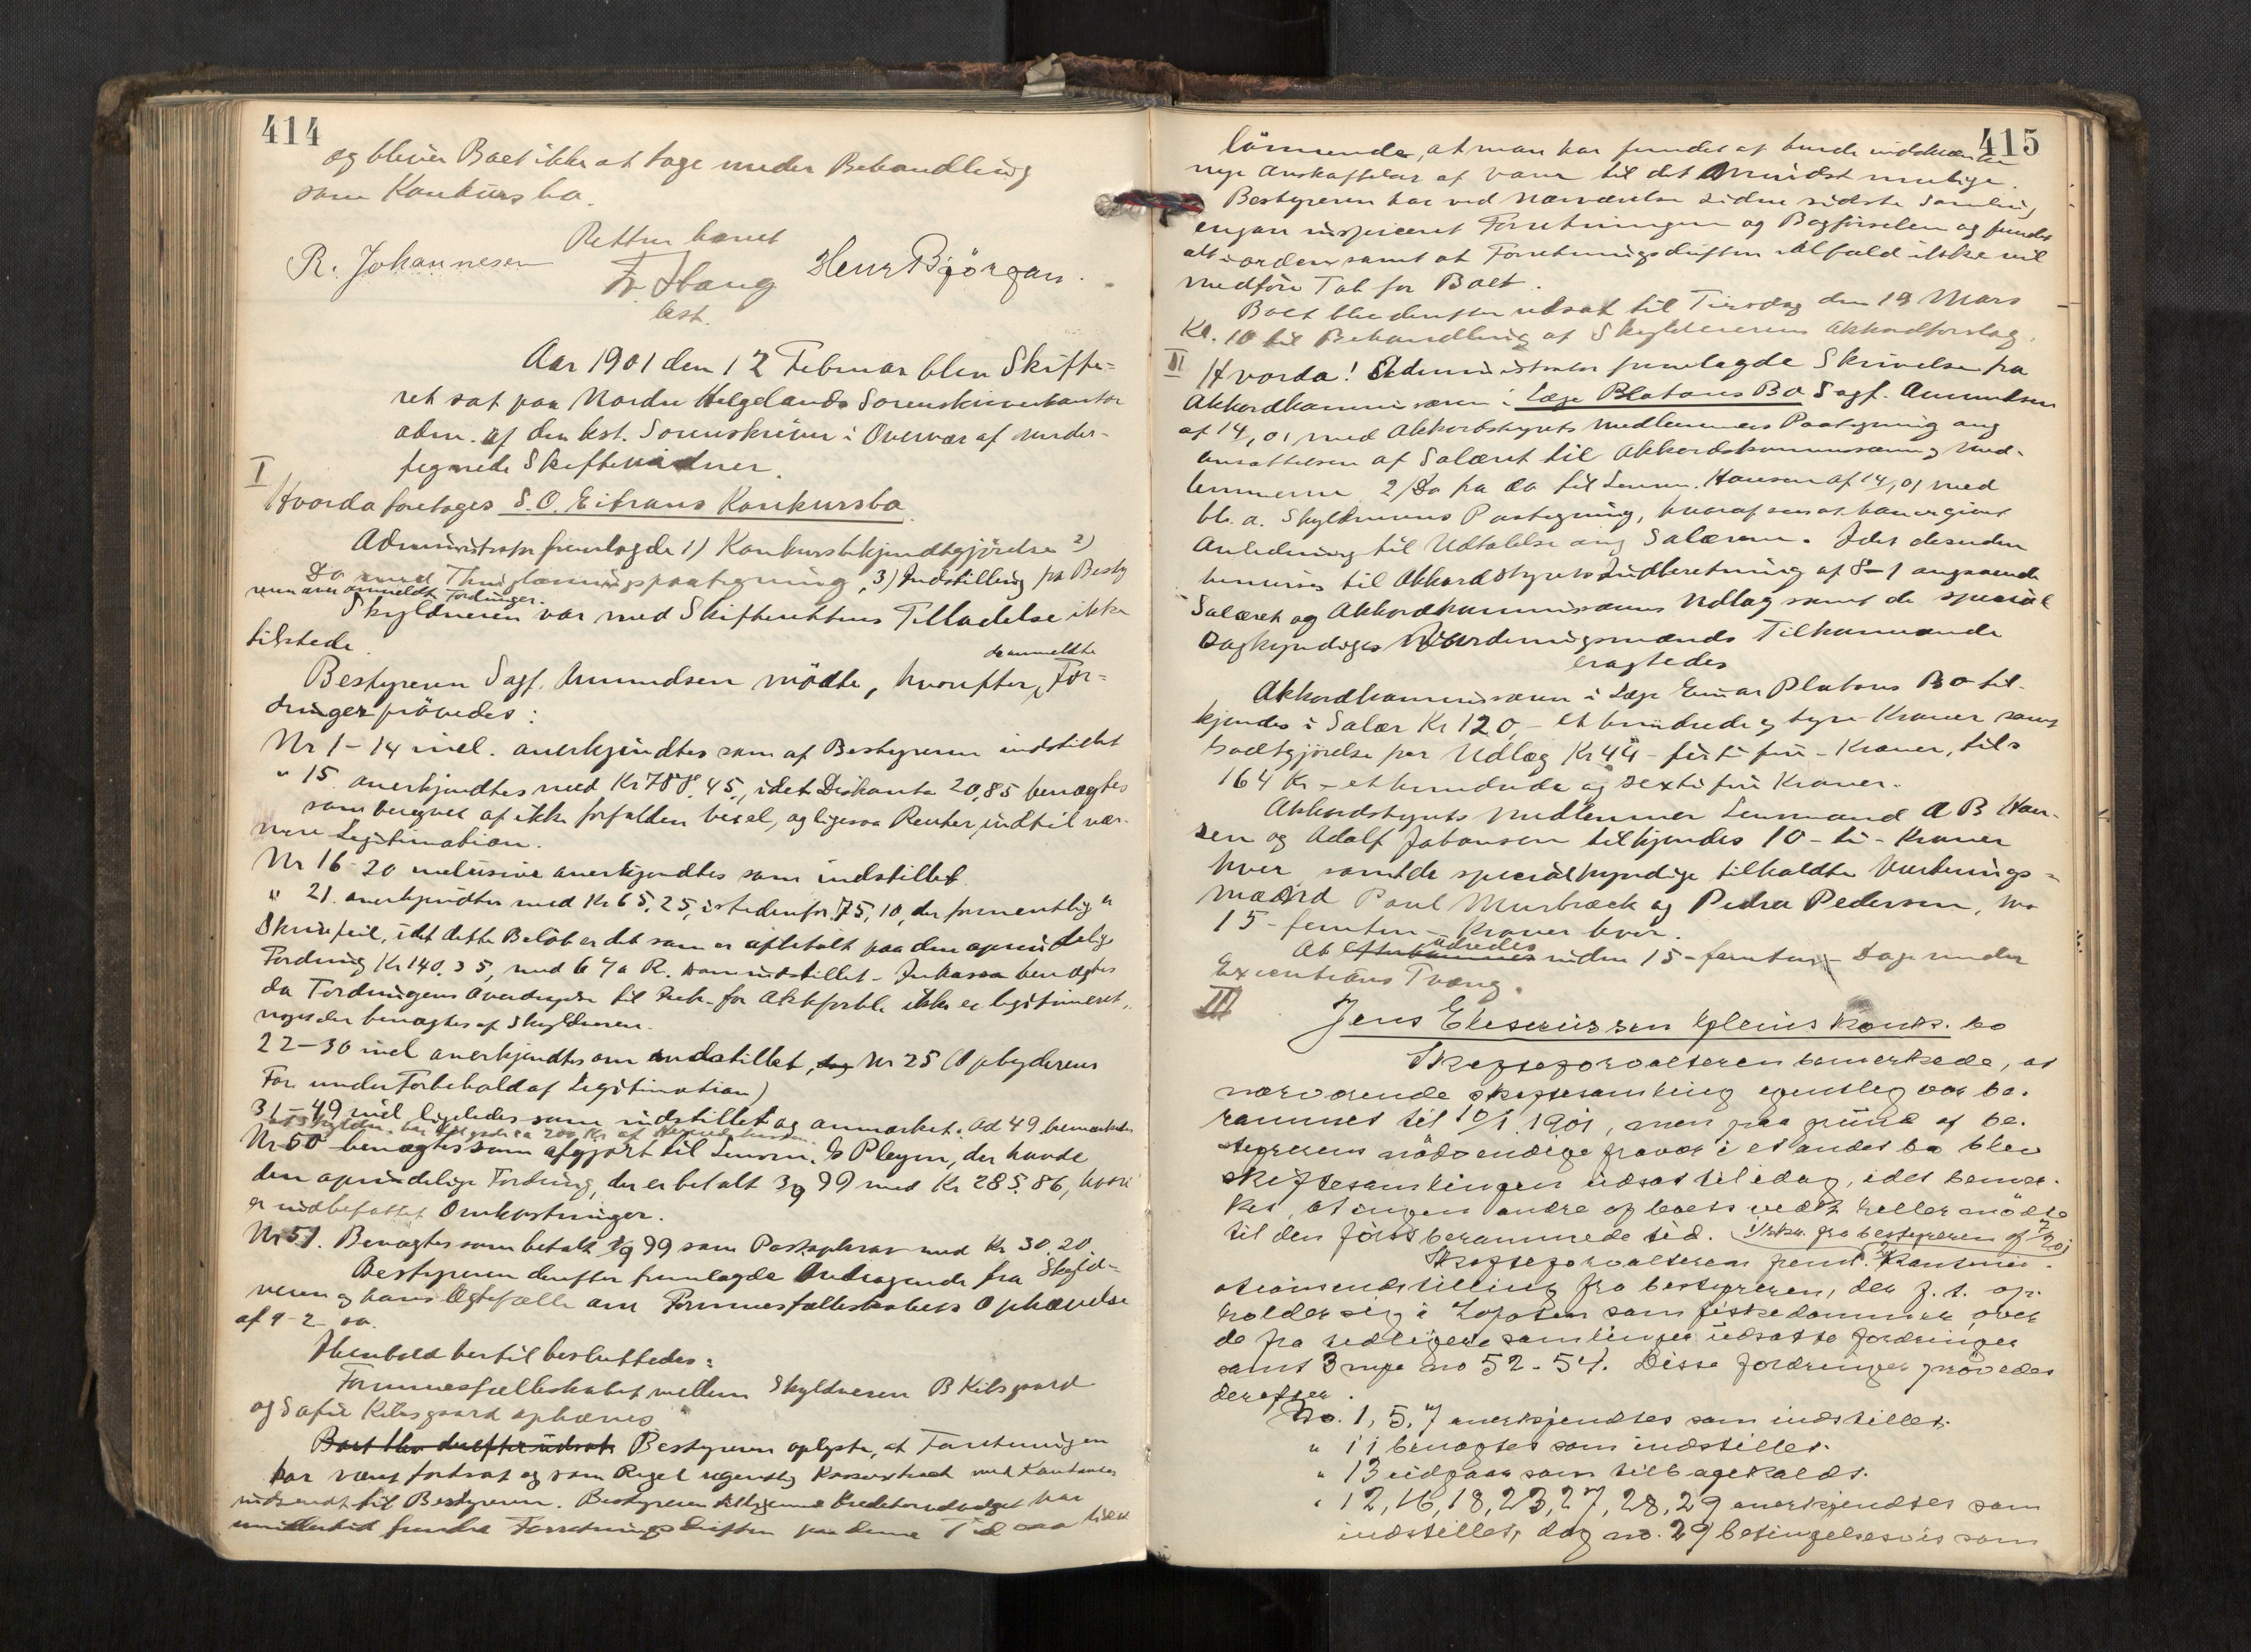 414
og bliver Boet ikke at tage under Behandling
som Konkursbo.
Retten hævet
R. Johannesen Fr. Stang Henr Bjørgan.
best.
Aar 1901 den 12 Februar blev Skifte-
ret sat paa Nordre Helgelands Sorenskriverkontor
adm. af den best. Sorenskriver i Overvær af under-
tegnede Skiftevidner.
I
Hvorda foretoges S. O. Eitrans Konkursbo.
Administrator fremlagde 1) Konkursbekjendtgjørelse 2)
Do med Thinglæsningspaategning, 3) Indstilling fra Besty
reren over anmeldte Fordringer.
Skyldneren var med Skifterettens Tilladelse ikke
tilstede.
de anmeldte
Bestyreren Sagf. Amundsen mödte, hvorefter For-
dringer prövedes:
Nr 1-14 incl. anerkjendtes som af Bestyreren indstillet
" 15 anerkjendtes med Kr 788.45, idet Diskonto 20,85 benægtes
som beregnet af ikke forfalden vexel, og ligesaa Renter, indtil nær-
mere Legitimation.
Nr 16-20 inclusive anerkjendtes som indstillet.
" 21. anerkjendtes med Kr 65,25, istedenfor 75,10, der formentlig er
Skrivfeil, idet dette Beløb er det som er afbetalt paa den oprindelige
Fordring Kr 140.35, med 6 % R. som indstillet - Inkasso benægtes
da Fordringens Overdragelse til Ink- for ikke er legitimeret,
der benægtes af Skyldneren.
22-30 incl anerkjendtes som indstillet, Nr 25 (Opbyderens
For. under Forbehold af Legitimation)
31-49 incl ligeledes som indstillet og anmærket. Ad 49 bemærkedes
Nr 50 benægtes som afgjort til Lensm. Pleym, der havde
den oprindelige Fordring, der er betalt 3/9 99 med Kr 285.86, hvori
er indbefattet Omkostninger.
Nr 51. Benægtes som betalt 9 99 som Postopkrav med Kr 30.20.
Bestyreren derefter fremlagde Andragende fra Skyld-
neren og hans Ægtefælle om Formuesfællesskabets Ophævelse
af 9-2
I Henhold hertil besluttedes:
Formuesfællesskabet mellem Skyldneren B Kilsgaard
og Sofie Kilsgaard ophæves
Boet blev derefter udsat Bestyreren oplyste, at Forretningen
har været fortsat og som Regel ugentlig Kasseextrakt med Kontanter
indsendt til Bestyreren. Bestyreren Kreditorudvalget har
imidlertid fundet Forretningsdriften paa denne Tid saa lidet
415
lönnende, at man har fundet at burde indskrænke
nye Anskaffelser af varer til det Mindst mulige.
Bestyreren har ved Nærværelse siden sidste Samling
engang inspiceret Forretningen og Bogförselen og fundet
alt i orden samt at Forretningsdriften ialfald ikke vil
medføre Tab for Boet.
Boet blev derefter udsat til Tirsdag den 19 Mars
Kl. 10 til Behandling af Skyldnerens Akkordforslag.
II
Hvorda! Administrator fremlagde Skrivelse fra
Akkordkommissæren i Læge Platous Bo Sagf. Amundsen
af 14, 01 med Akkordstyrets Medlemmers Paategning ang
Ansættelsen af Salæret til Akkordskommissæren og Med-
lemmerne. 2/ Do fra do til Lensm. Hansen af 14, 01 med
bl. a. Skyldnerens Paategning, hvoraf sees at han er givet
Anledning til Udtalelse ang Salærene. Idet desuden
henvises til Akkordstyrets Indberetning af 8-1 angaaende
Salæret og Akkordkommissærens Udlæg samt de special
sagkyndiges Vurderingsmænds Tilkommende
eragtedes
Akkordkommissæren i Læge Einar Platous Bo til-
kjendes i Salær Kr 120,- et hundrede og tyve Kroner samt
Godtgjørelse for Udlæg Kr 44 - firti fire - Kroner, tils
164 Kr - et hundrede og sexti fire Kroner.
Akkordstyrets Medlemmer Lensmand A B Han-
sen og Adolf Johansen tilkjendes 10 - ti - Kroner
hver samt de specialkyndige tilkaldte Vurderings-
mænd Poul Musbræck og Peder Pedersen, Mo
15 - femten - Kroner hver.
udredes
At efterkommes inden 15 - femten - Dage under
Executions Tvang.
III
Jens Elesæussen konk. bo
Skifteforvalteren bemerkede, at
nærværende skiftesamling egentlig var be-
rammet til 10/1. 1901, men paa grund af be-
styrerens nödvendige fravær i et andet bo blev
skiftesamlingen udsat til idag, idet bemer-
kes, at ingen andre af boets vedk. heller mödte
til den först berammede tid. 1/ skr. fra bestyreren af 7/1 01
Skifteforvalteren freml. 2/
indstilling fra bestyreren, der f. t. op-
holder sig i Lofoten som fiskedommer, over
de fra tidligere samlinger udsatte fordringer
samt 3 nye no 52-54. Disse fordringer prövedes
derefter.
No. 1, 5, 7 anerkjendtes som indstillet.
" 11 benægtes som indstillet.
" 13 udgaar som tilbagekaldt.
" 12, 16, 18, 23, 27, 28, 29 anerkjendtes som
indstillet, dog no. 29 betingelsesvis som